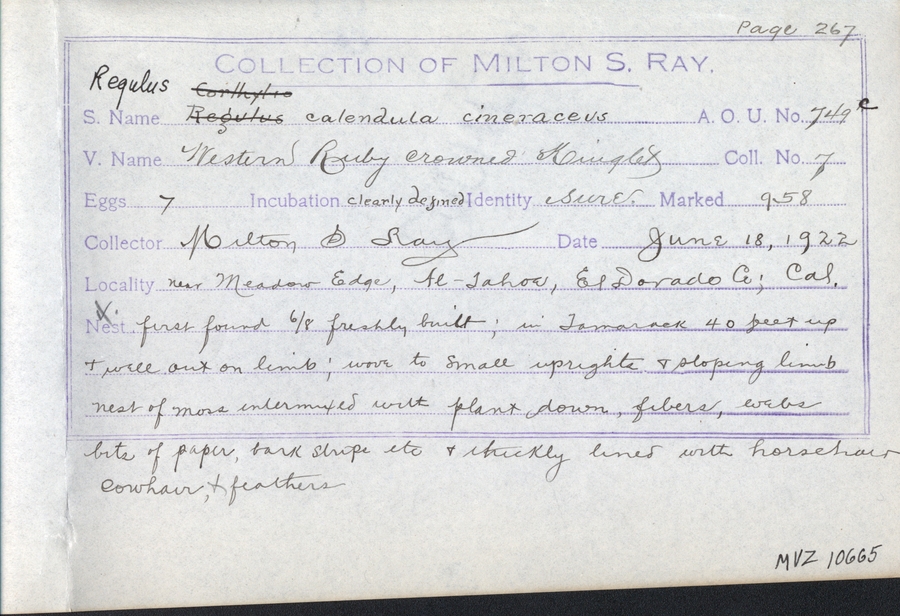 Page 267
COLLECTION OF MILTON S. RAY.
Regulus Corthylio
S. Name Regulus calendula cineraceus A. O. U. No. 749 c
V. Name Western Ruby crowned Kinglet Coll. No. 7
Eggs 7 Incubation clearly defined Identity sure. Marked 958
Collector Milton S Ray Date June 18, 1922
Locality near Meadow Edge, Al-Tahoe, El Dorado Co; Cal.
X.
Nest first found 6/8 freshly built; in Tamarack 40 feet up
+ well out on limb; wove to small uprights + sloping limb
nest of moss intermixed with plant down, fibers, webs
bits of paper, bark strips etc + thickly lined with horsehair
cowhair, + feathers
MVZ 10665